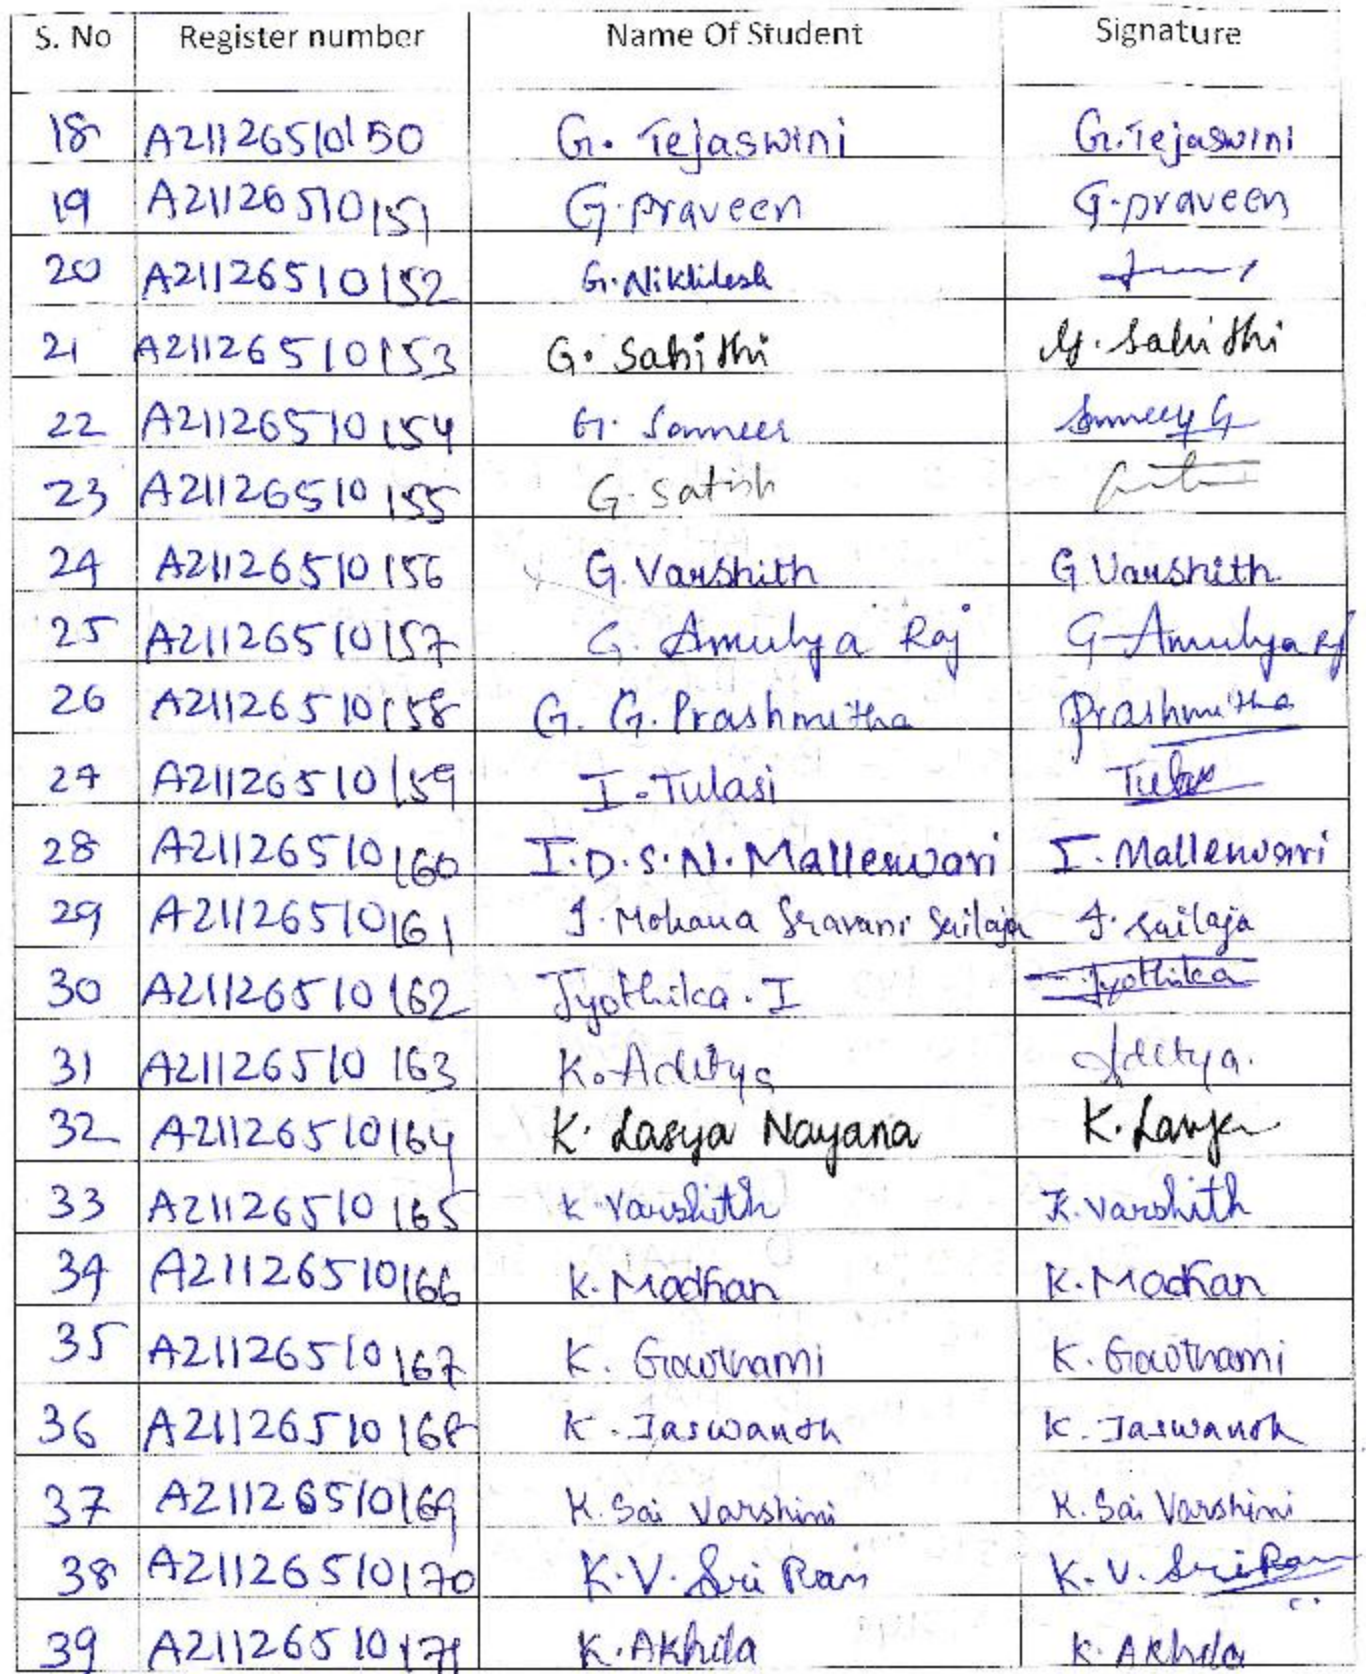 S. No Register number Name Of Student Signature
18 A21126510150 G. Tejaswini G. Tejaswini
19 A21126510151 G. praveen G. praveen
20 A21126510152 G. Nikhilesh
21 A21126510153 G. Sahithi G. Sahithi
22 A21126510154 G. Sameer Sameer G
23 A21126510155 G. Satish
24 A21126510156 G. Varshith G Varshith
25 A21126510157 G. Amulya Raj G Amulya Raj
26 A21126510158 G. G. Prashmitha Prashmitha
27 A21126510159 I. Tulasi Tulasi
28 A21126510160 I. D. S. N. Malleswari I. Malleswari
29 A21126510161 J. Mohana Sravani Sailaja J. Sailaja
30 A21126510162 Jyothika. I Jyothika
31 A21126510163 K. Aditya Aditya.
32 A21126510164 K. Lasya Nayana K. Lasya
33 A21126510165 K. Varshith K. Varshith
34 A21126510166 K. Madhan K. Madhan
35 A21126510167 K. Gowthami K. Gowthami
36 A21126510168 K. Jaswanth K. Jaswanth
37 A21126510169 K. Sai Varshini K. Sai Varshini
38 A21126510170 K. V. Sri Ram K. V. Sri Ram
39 A21126510171 K. Akhila K. Akhila